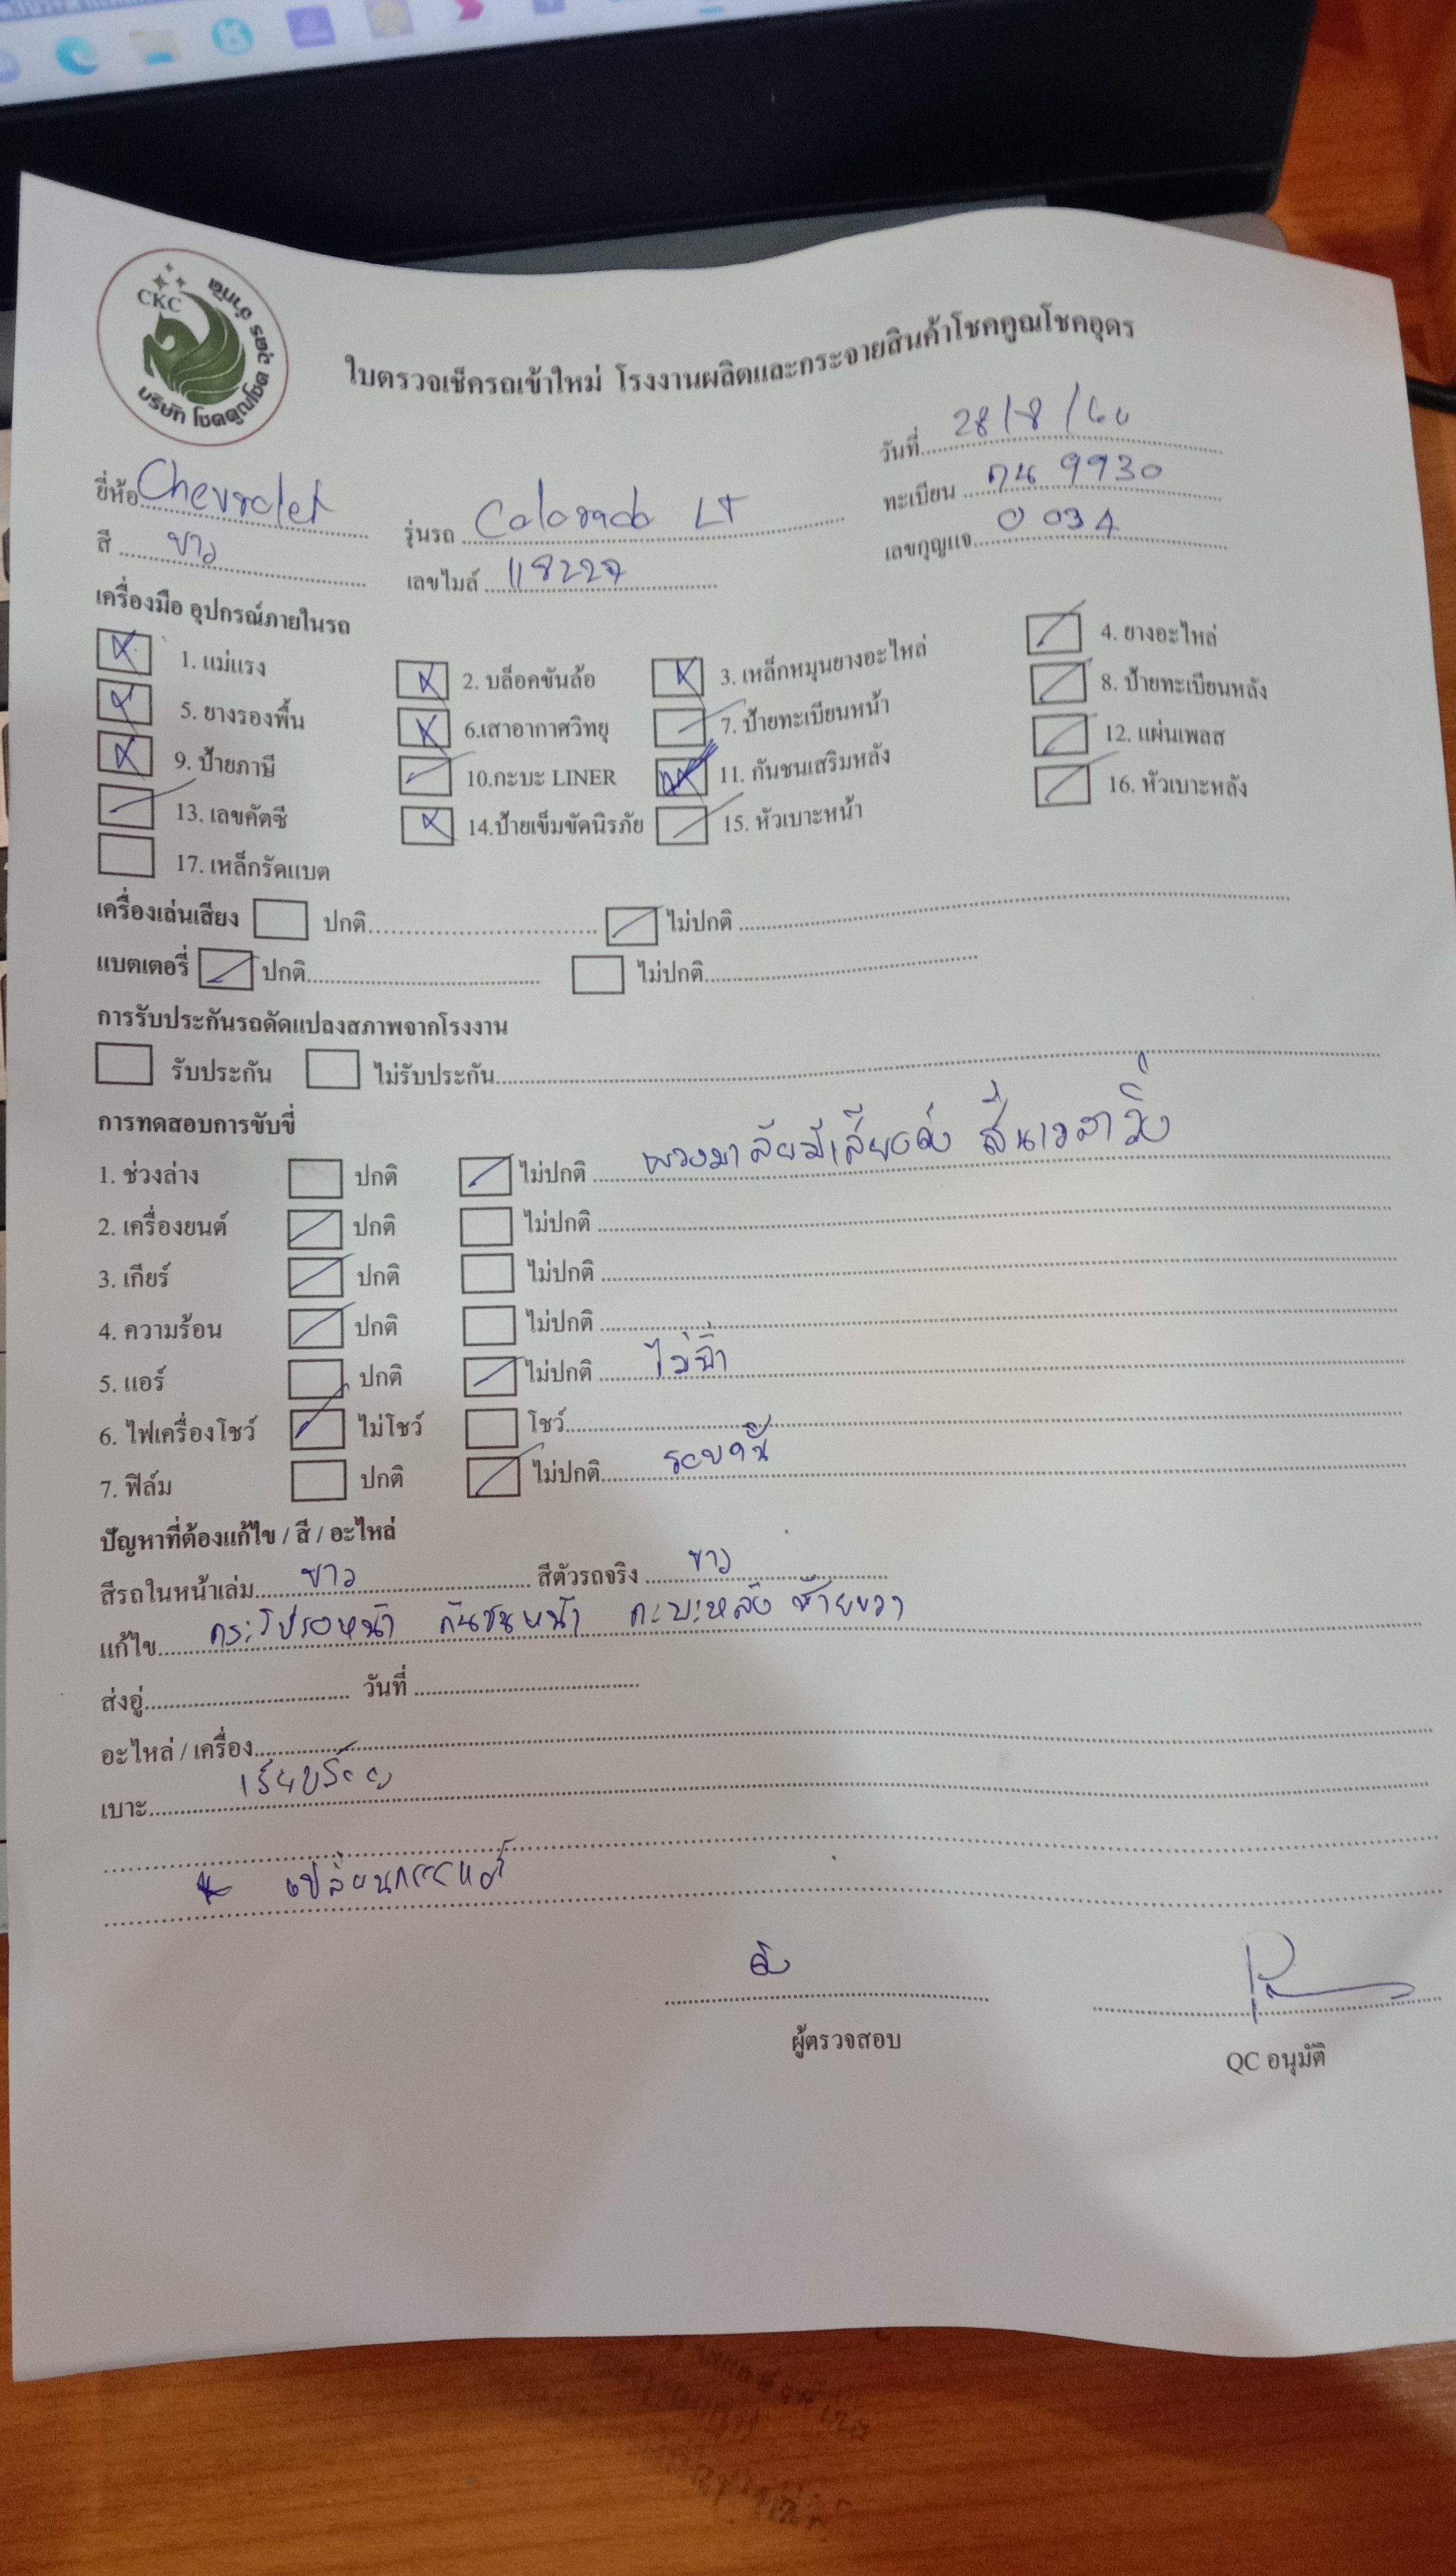 CKC
บริษัท โชคคูณโชค อุดร จำกัด
ใบตรวจเช็ครถเข้าใหม่ โรงงานผลิตและกระจายสินค้าโชคคูณโชคอุดร
วันที่ 28/8/
ยี่ห้อ Chevrolet รุ่นรถ Colorado LT ทะเบียน 9930
สี ขาว เลขไมล์ 118227 เลขกุญแจ 0034
เครื่องมือ อุปกรณ์ภายในรถ
1. แม่แรง 2. บล็อคขันล้อ 3. เหล็กหมุนยางอะไหล่ 4. ยางอะไหล่
5. ยางรองพื้น 6.เสาอากาศวิทยุ 7. ป้ายทะเบียนหน้า 8. ป้ายทะเบียนหลัง
9. ป้ายภาษี 10.กะบะ LINER 11. กันชนเสริมหลัง 12. แผ่นเพลส
13. เลขคัตซี 14.ป้ายเข็มขัดนิรภัย 15. หัวเบาะหน้า 16. หัวเบาะหลัง
17. เหล็กรัดแบต
เครื่องเล่นเสียง ปกติ ไม่ปกติ
แบตเตอรี่ ปกติ ไม่ปกติ
การรับประกันรถดัดแปลงสภาพจากโรงงาน
รับประกัน ไม่รับประกัน
การทดสอบการขับขี่
1. ช่วงล่าง ปกติ ไม่ปกติ พวงมาลัยมีเสียงดัง สั่นเวลาวิ่ง
2. เครื่องยนต์ ปกติ ไม่ปกติ
3. เกียร์ ปกติ ไม่ปกติ
4. ความร้อน ปกติ ไม่ปกติ
5. แอร์ ปกติ ไม่ปกติ
6. ไฟเครื่องโชว์ ไม่โชว์ โชว์
7. ฟิล์ม ปกติ ไม่ปกติ
ปัญหาที่ต้องแก้ไข / สี / อะไหล่
สีรถในหน้าเล่ม ขาว สีตัวรถจริง ขาว
แก้ไข กระโปรงหน้า กันชนหน้า กะบะหลัง ซ้ายขวา
ส่งอู่ วันที่
อะไหล่ / เครื่อง
เบาะ เรียบร้อย
เปลี่ยน
ผู้ตรวจสอบ QC อนุมัติ